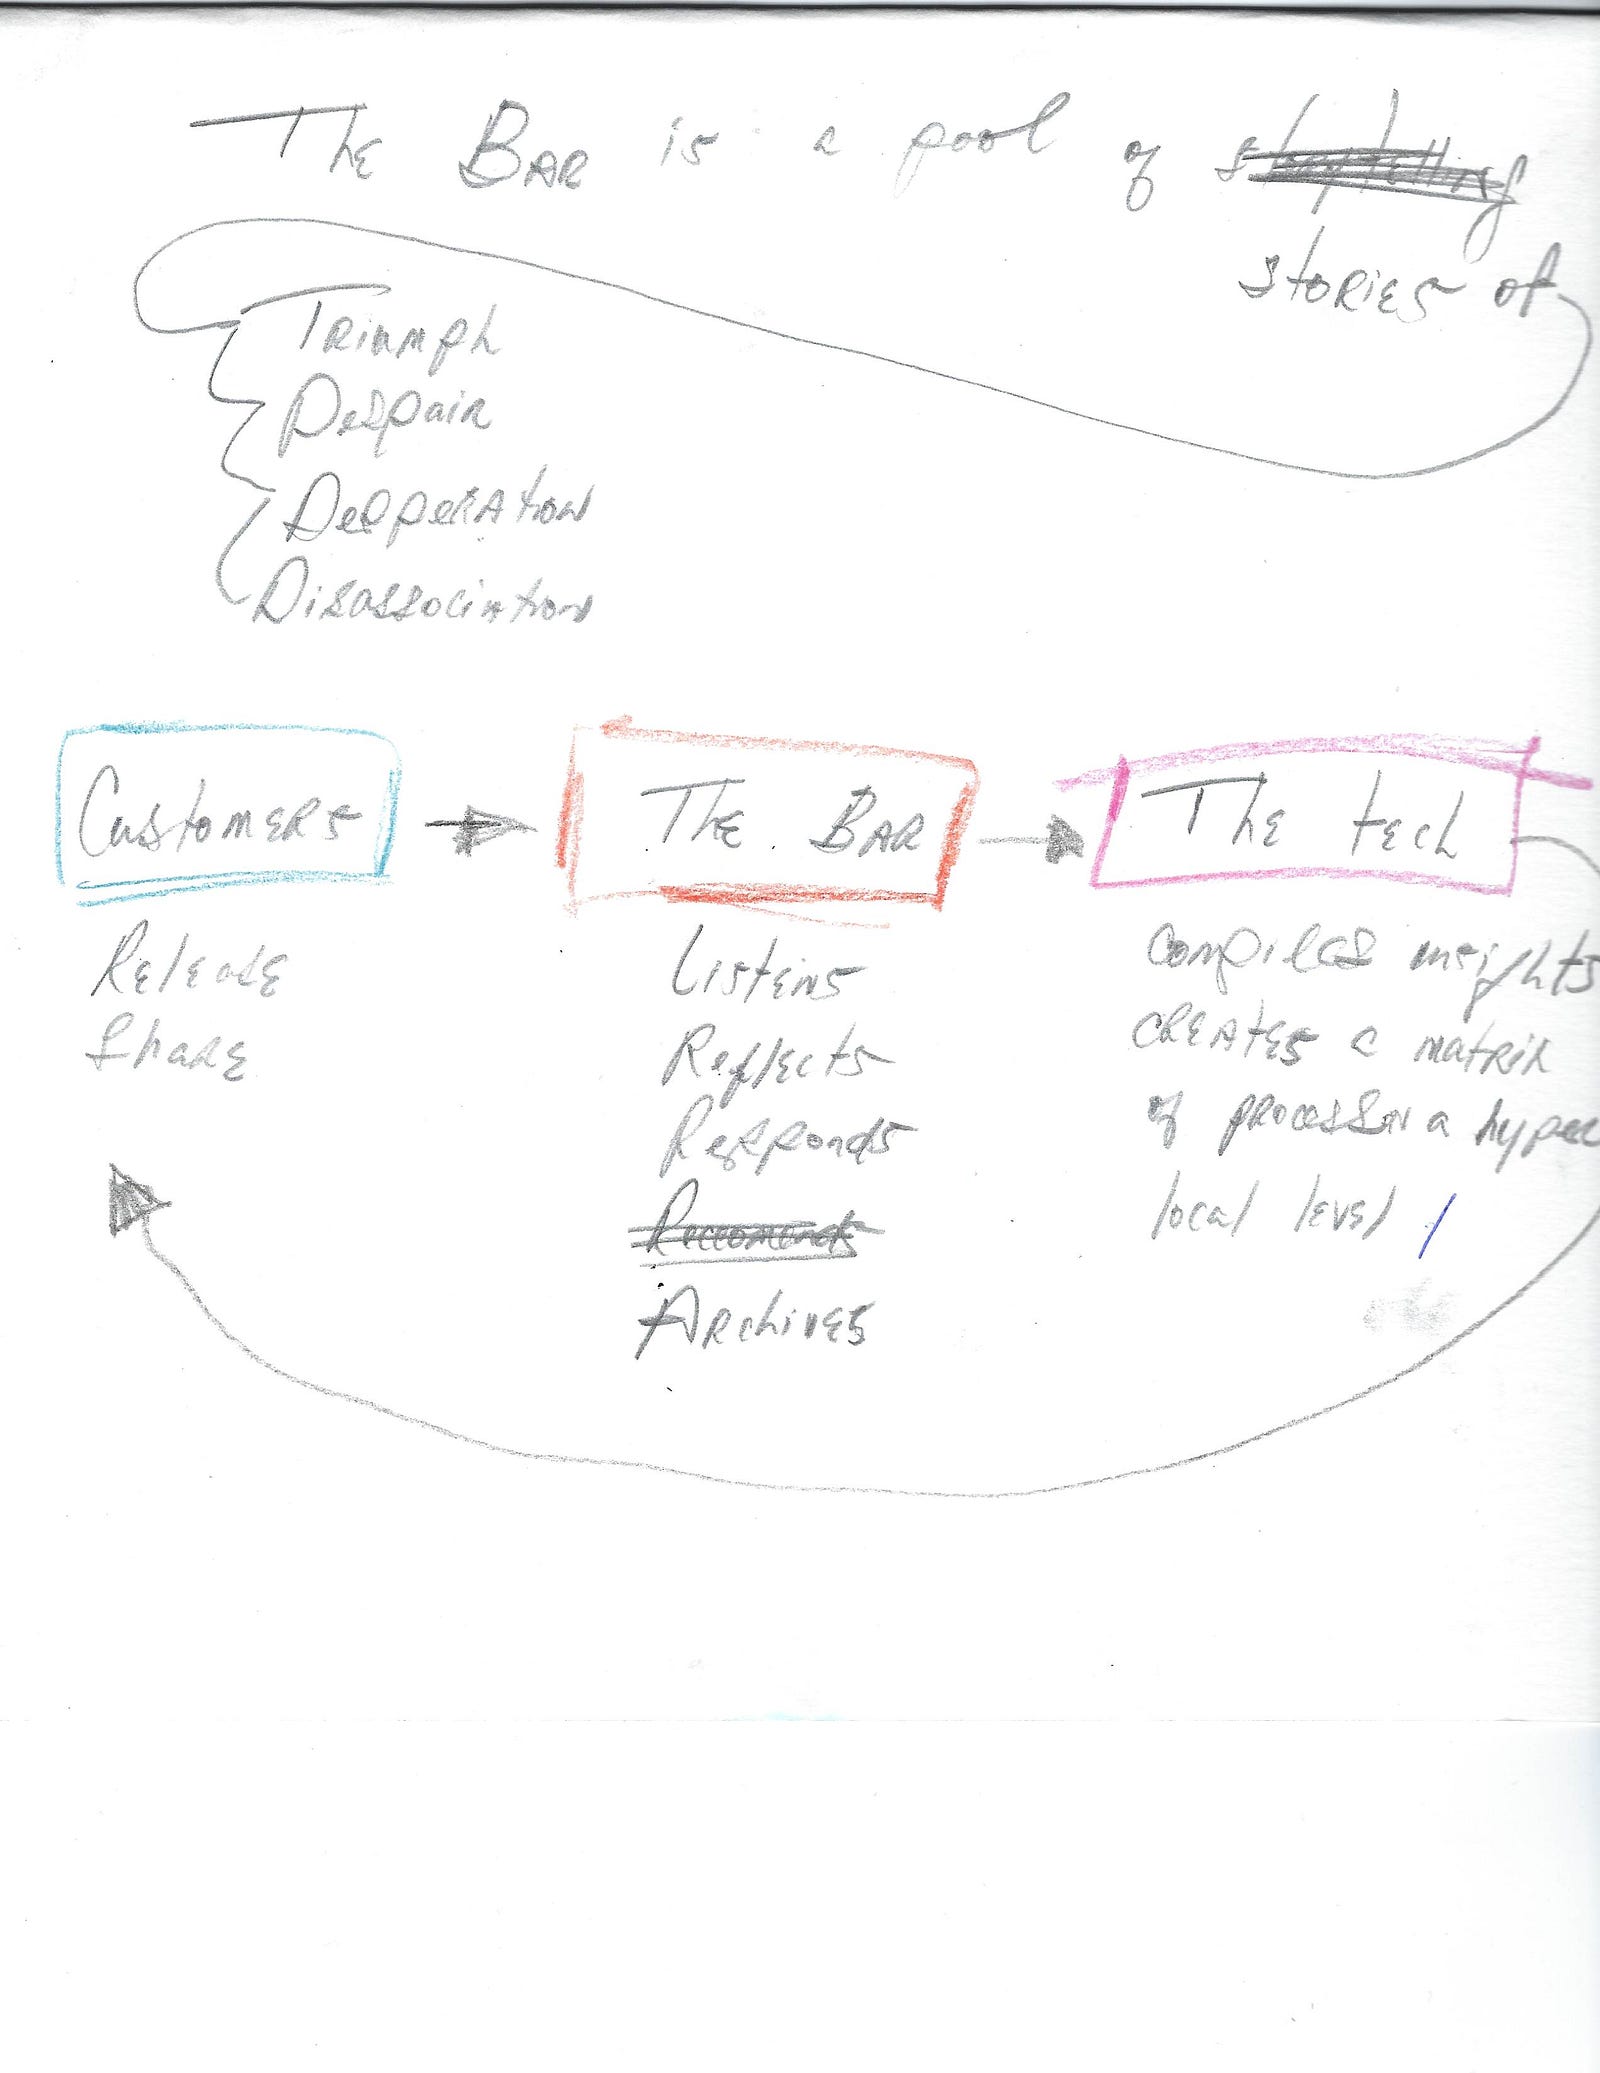 The Bar is a pool of storytelling
stories of
Triumph
Despair
Desperation
Disassociation
Customers
The Bar
The tech
Release
Share
Listens
Reflects
Responds
Reccomends
Archives
compiles insights
creates a matrix
of process on a hyper
local level